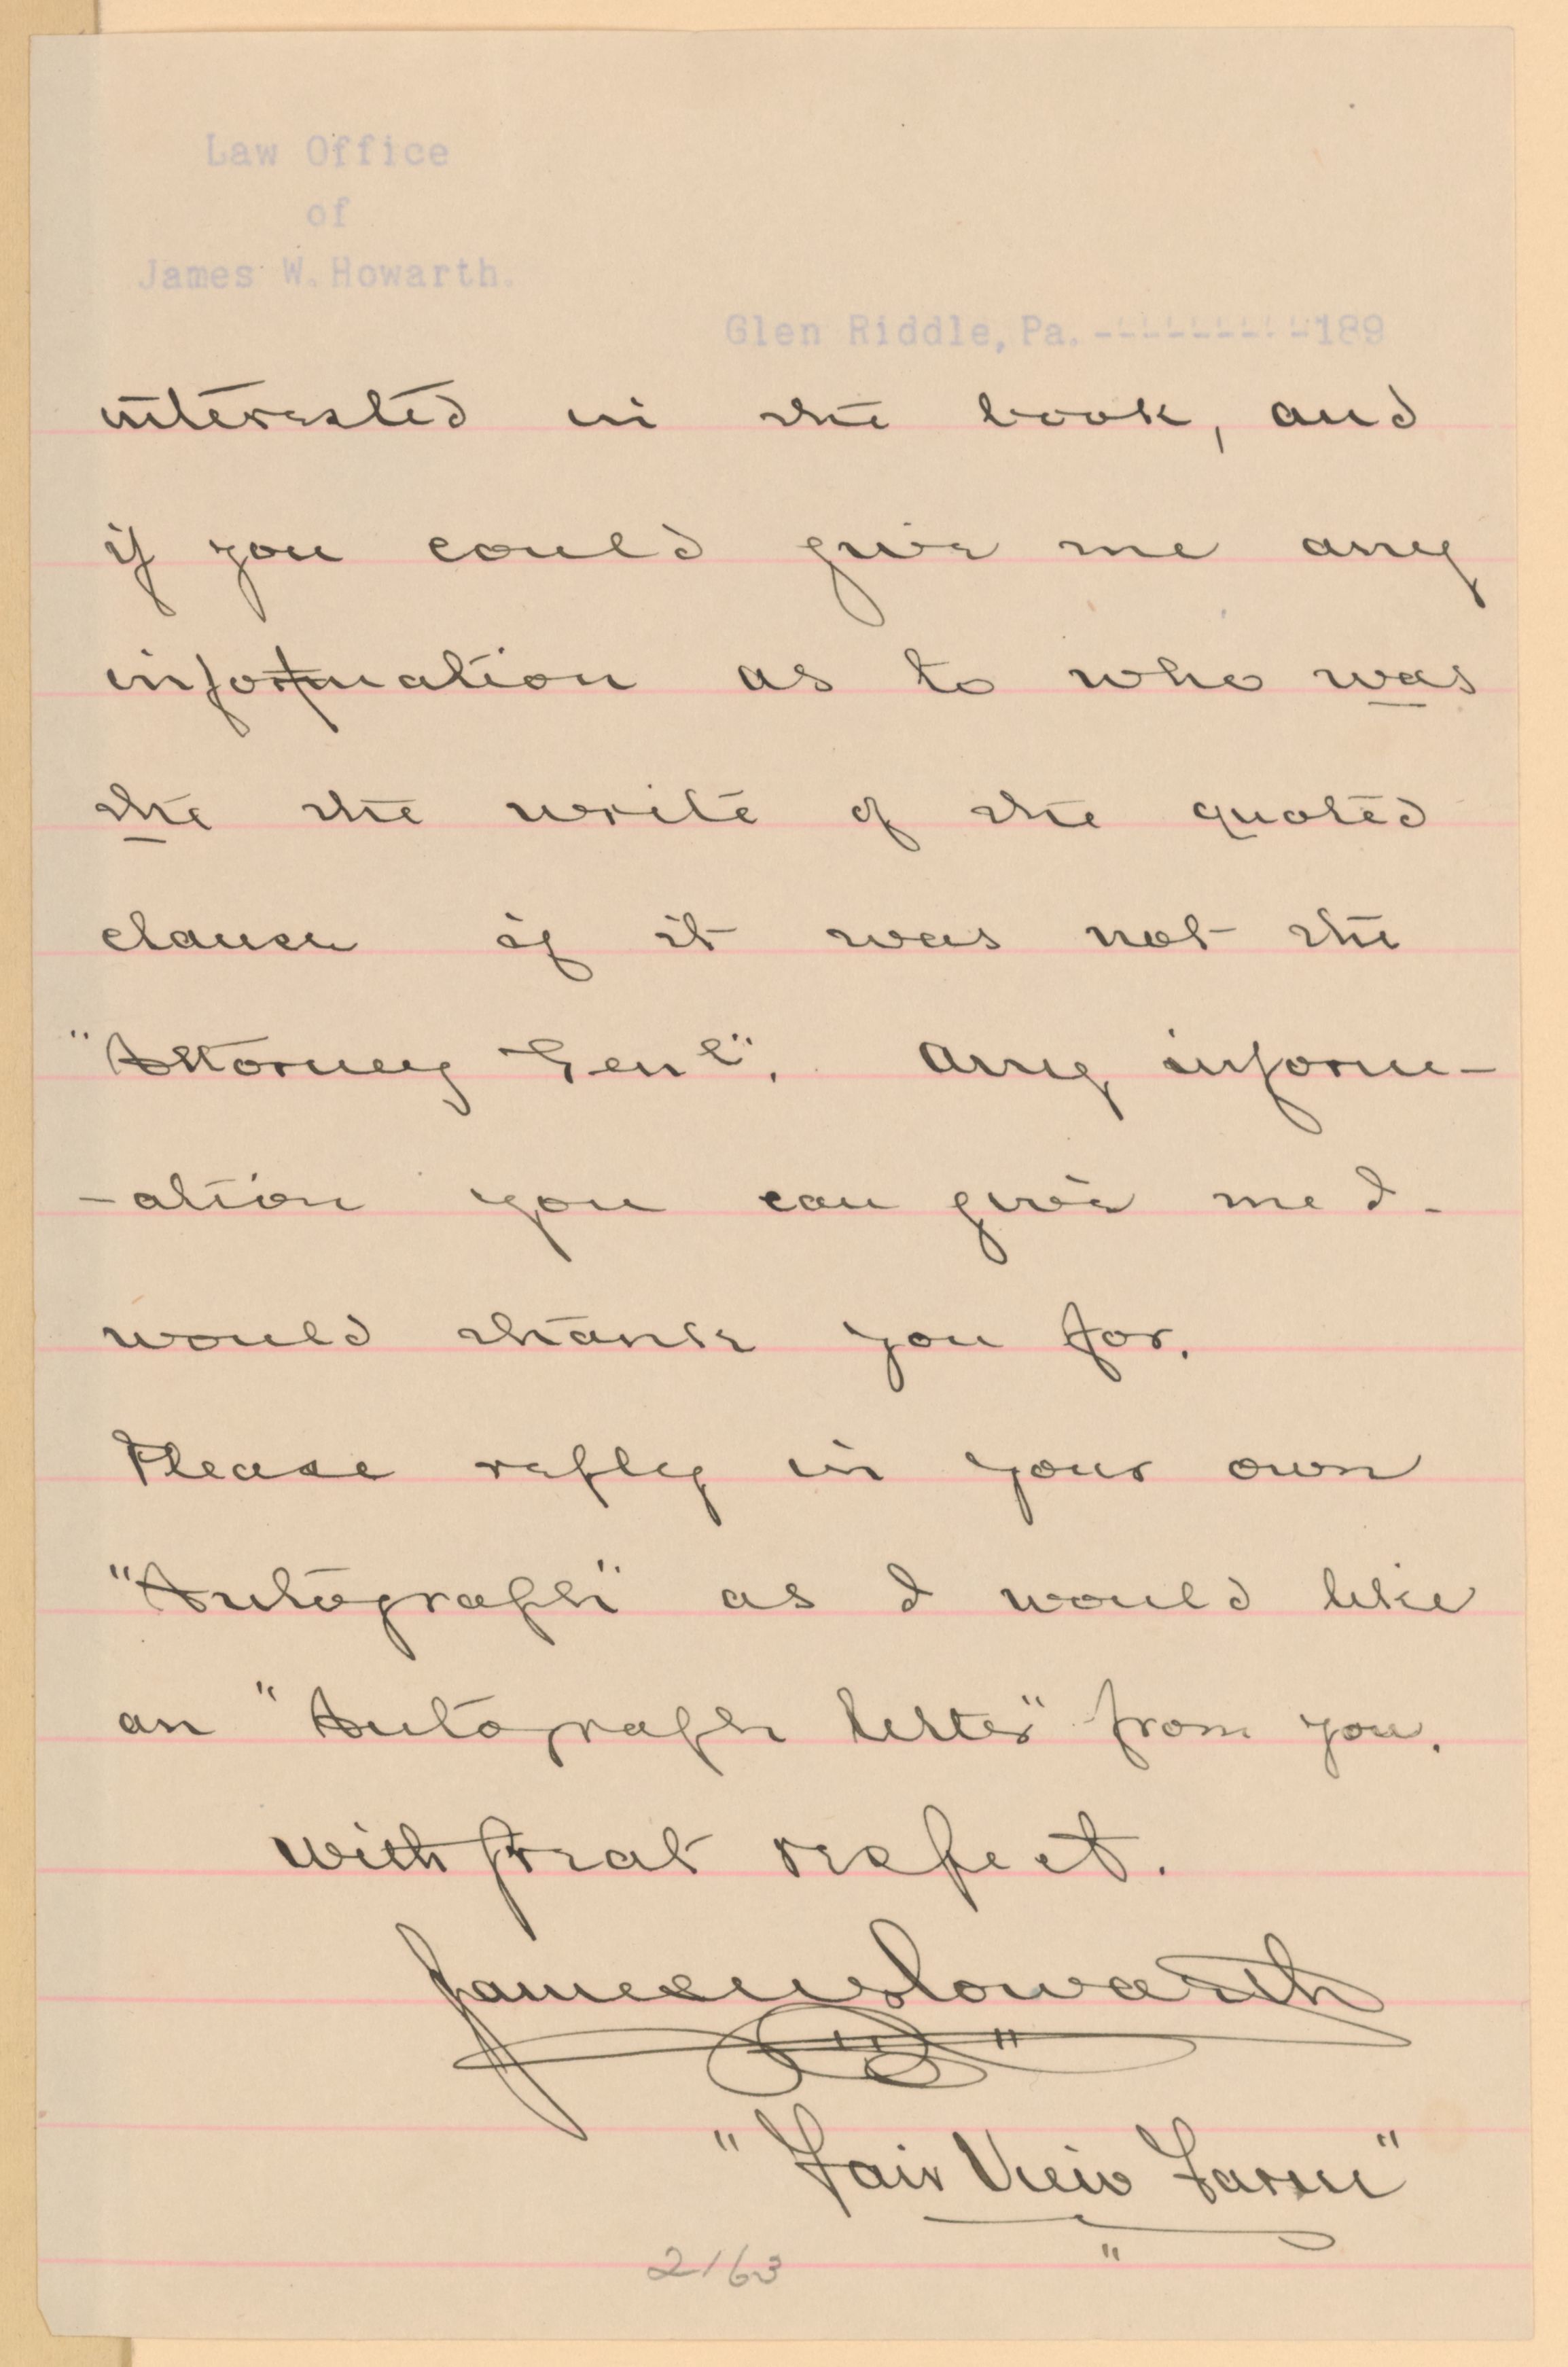 Law Office
of
James W. Howarth.
Glen Riddle, Pa. ----------189
interested in the book, and
if you could give me any
information as to who was
the the write of the quoted
clause if it was not the
"Attorney Genl". Any inform-
-ation you can give me I-
would thank you for.
Please reply in your own
"Autograph" as I would like
an "Autograph letter" from you.
With great respect.
James W Howarth
"Fair View Farm"
2163